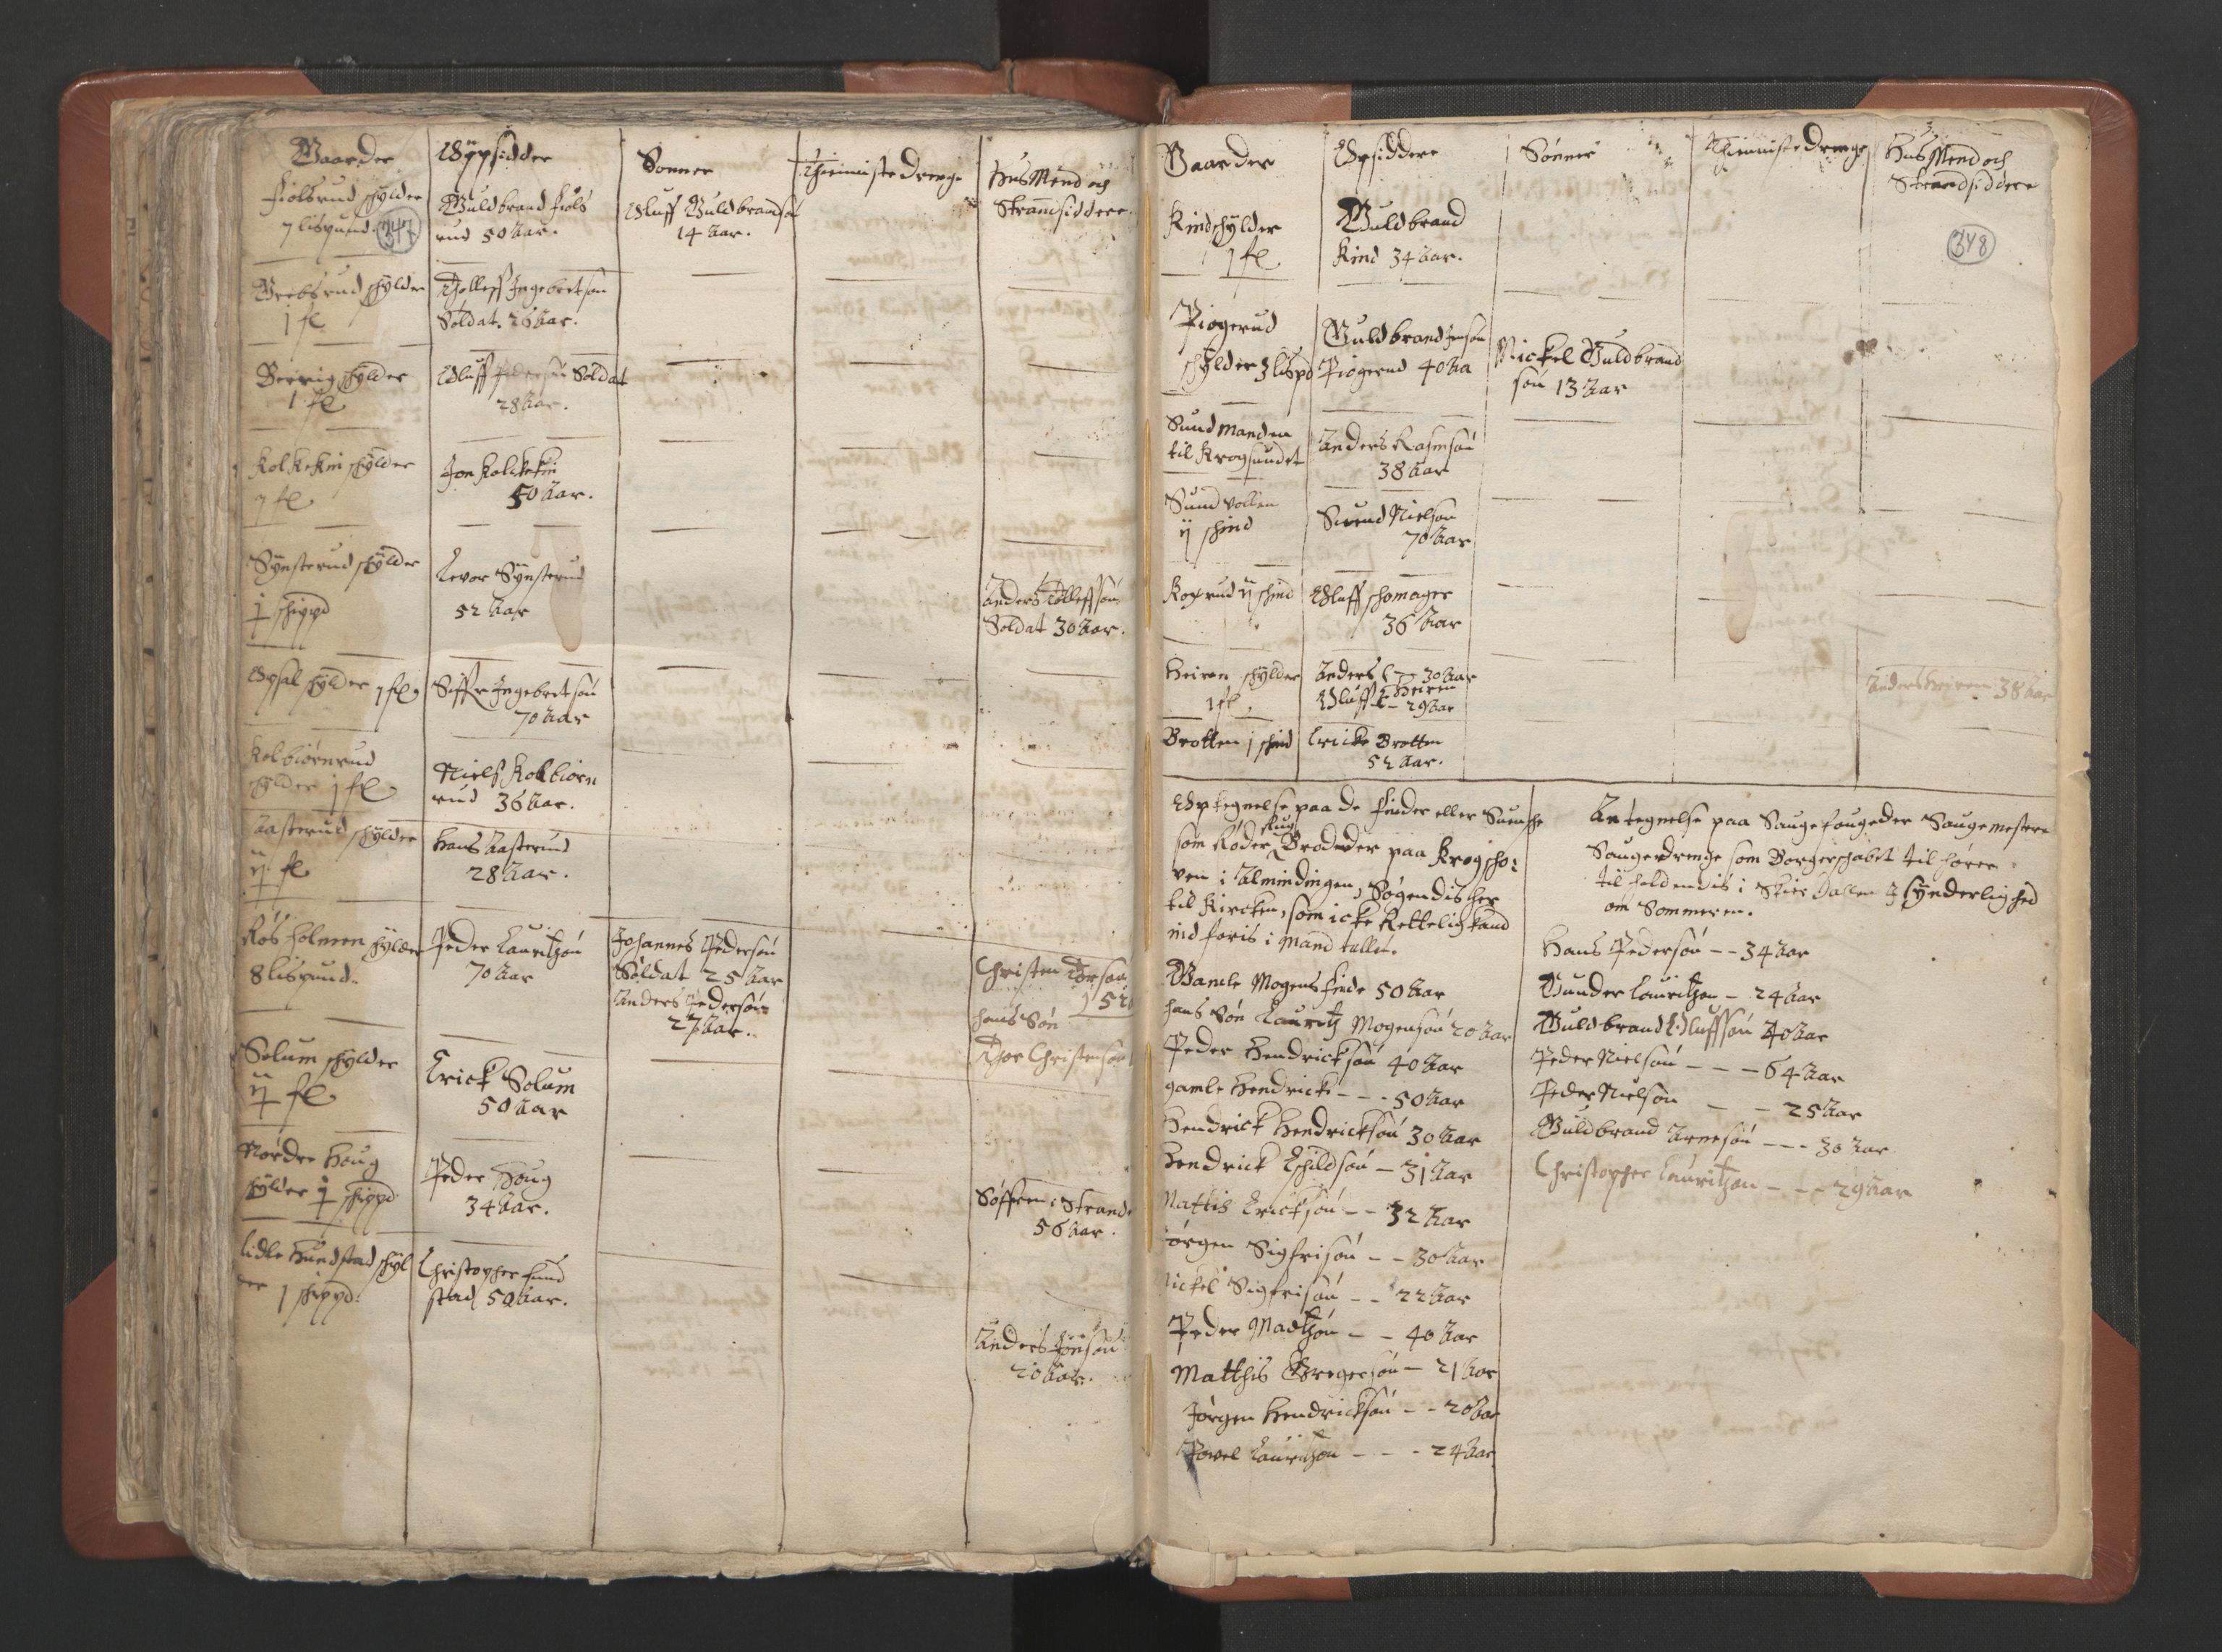 Gaarder
Opsidder
Sønner
Thieniste drenge
HusMend och
Strandsiddere
Fiølsrud schylder
7 lispund.
347
Guldbrand Fiøls
rud 50 Aar.
Oluff Guldbrandsøn
14 Aar.
schylder
1 fl
Tolleff Ingebretsøn
Soldat. 26 Aar.
schylder
1 fl
Oluff Pedersøn Soldat
28 Aar.
Kolkekin schylder
fl
Jon Kolkekin
50 Aar.
Synsterud schylder
schippd
Levor Synsterud
52 Aar
Anders Tolleffsøn
Soldat 30 Aar.
Opsal schylder 1 fl
Siffr Ingebretsøn
70 Aar
Kolbiørnrud
schylder 1 fl
Niels Kolbiørn
rud 36 Aar.
Aasterud schylder
fl
Hans Aasterud
28 Aar.
Røsholmen schylder
8 lispund.
Peder Lauritzøn
70 Aar
Johannes Pedersøn
Soldat 25 Aar
Anders Pedersøn
27 Aar.
Christen Torsøn
52
hans Søn
Thor Christensøn
Solum schylder
fl
Erick Solum
50 Aar
Nordre Houg
schylder schippd
Peder Houg
34 Aar.
Søffren Strand
56 Aar.
Lidle Hundstad schyl
der 1 schippd:
Christopher Hund
stad 50 Aar.
Anders Jonsøn
20 Aar.
Gaarder
Opsiddere
Sønner
Thieniste Drenge
HusMend och
Strandsiddere
348
Kind schylder
1 fl
Guldbrand
Kind 34 Aar.
Piøgerud
schylder 3 lispd
Guldbrand Jensøn
Piøgerud 40 Aa
Nickel Guldbrand
søn 13 Aar
Sundmanden
til Krogsundet
Anders Rasmsøn
38 Aar
Sundvollen
ij schind
Svend Nielsøn
70 Aar
Roprud ij schind
Oluff schomager
36 Aar
Heiren schylder
1 fl.
Anders 30 Aar
Heiren
Oluff 29 Aar
Anders Heiren 38 Aar
Brotten j schind
Ericke Brotten
52 Aar.
Optegnelse paa de Finder eller Suensche
som Røder Rug
Brodeder paa Krogscho:
ven i Almindingen, Søgendis her
til Kircken, som icke Rettelig kand
indføris i Mand tallit.
Gamle Mogens Finde 50 Aar
hans Søn Lauritz Mogensøn 20 Aar
Peder Hendricksøn 40 Aar
gamle Hendrick - - - 50 Aar
Hendrick Hendricksøn 30 Aar
Hendrick Eschildsøn - 31 Aar
Mattis Ericksøn - - 32 Aar
Jørgen Sigfrisøn - - 30 Aar
Nickel Sigfrisøn - - 22 Aar
Peder Madtzøn - - 40 Aar
Matthis Gregersøn - 21 Aar
Jørgen Hendricksøn - - 20 Aar
Povel Lauritzøn - - - 24 Aar
Antegnelse paa Saugefougeder Saugemestere
Saugedrenge som Borgerschabet tilhører
tilholdendis i Schier dallen Synderlighed
om Sommeren.
Hans Pedersøn - - 34 Aar
Gunder Lauritzøn - 24 Aar
Guldbrand Oluffsøn 40 Aar
Peder Nielsøn - - - 64 Aar
Peder Nielsøn - - 25 Aar
Guldbrand Arnesøn - - - 30 Aar
Christopher Lauritzøn - - - 29 Aar